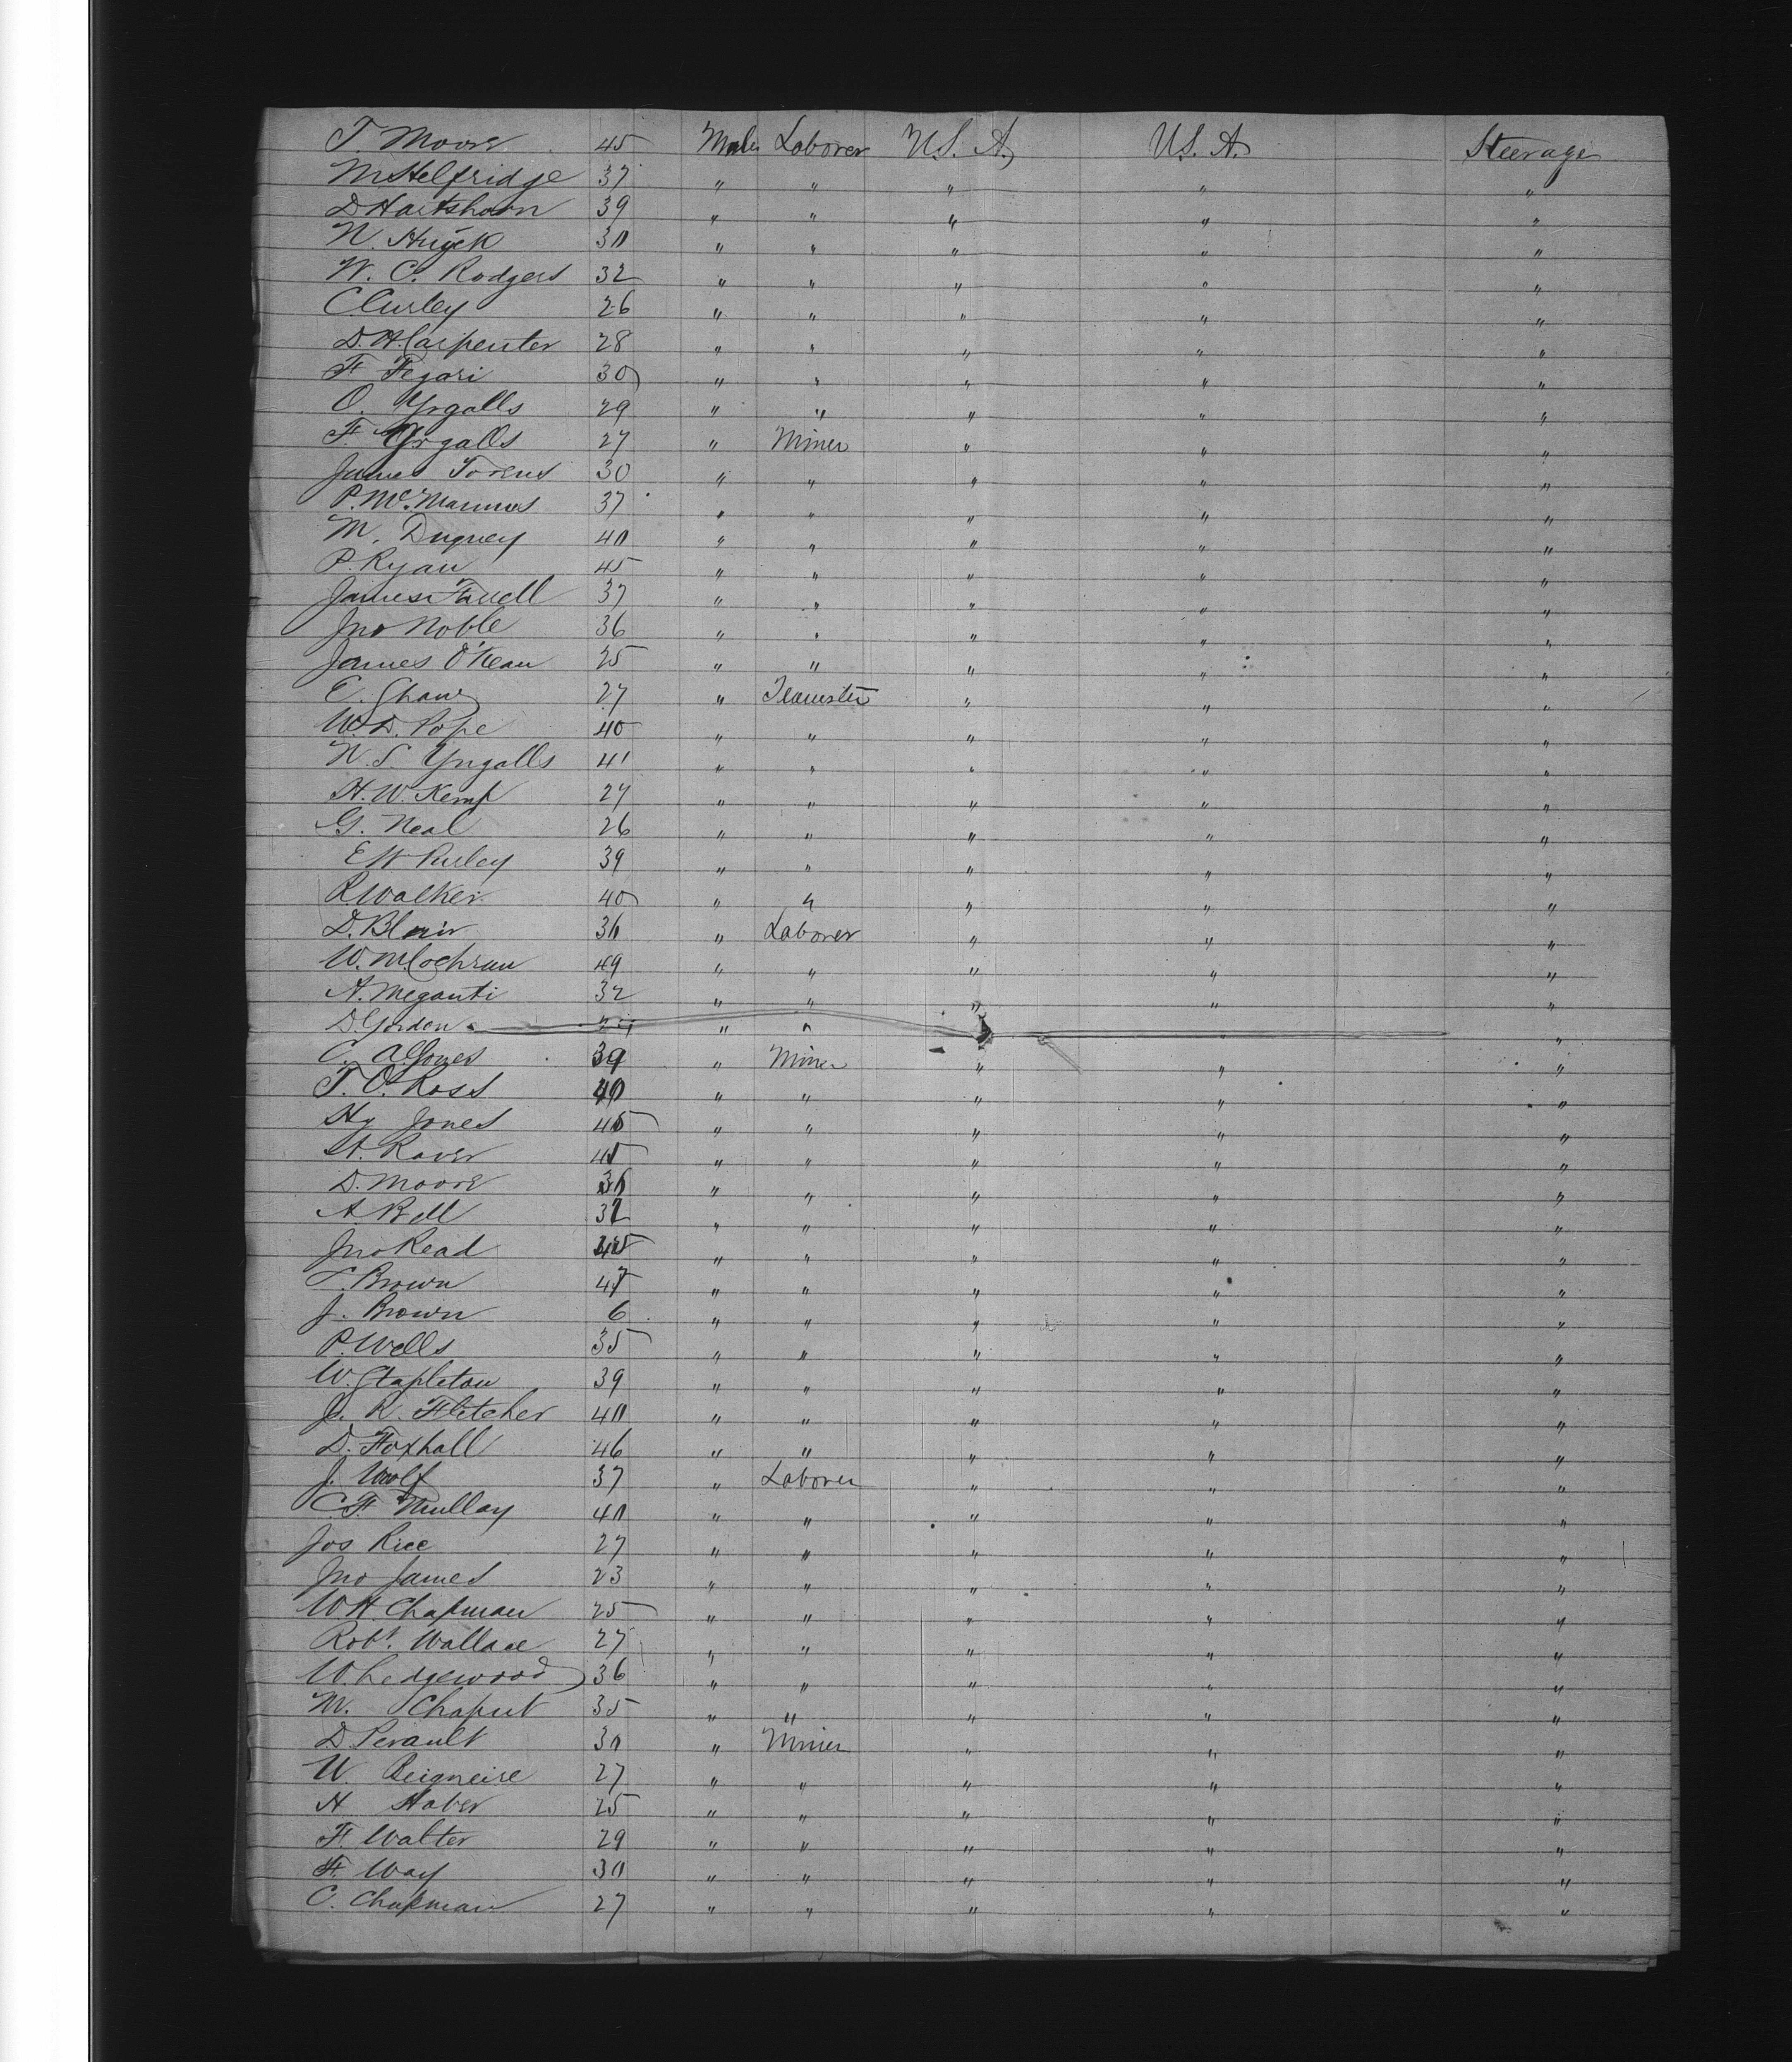 T. Moore 45 Male Laborer U.S.A. U.S.A. Steerage
M Helfridge 37 " " " " "
D Hartshorn 39 " " " " "
N. Huyck 30 " " " " "
W. C. Rodgers 32 " " " " "
C Curley 26 " " " " "
D. H. Carpenter 28 " " " " "
F Fegari 30 " " " " "
O. Yngalls 29 " " " " "
F Yngalls 27 " Miner " " "
James 30 " " " " "
P. McMannus 37 " " " " "
M. Duguey 40 " " " " "
P. Ryan 45 " " " " "
James Farrell 37 " " " " "
Jno Noble 36 " " " " "
James O'Kean 25 " " " " "
E. Shaw 27 " Teamster " " "
W. D. Pope 40 " " " " "
N. S. Yngalls 41 " " " " "
H. W. Kemp 27 " " " " "
G. Neal 26 " " " " "
E W Purley 39 " " " " "
R. Walker 40 " " " " "
D. Blair 30 " Laborer " " "
W. M. Cochran 49 " " " " "
A. Meganti 32 " " " " "
D. Gordon " " " " "
C. A. Jones 39 " Miner " " "
T. O. Ross 40 " " " " "
Hy Jones 45 " " " " "
A. Raver 45 " " " " "
D. Moore 30 " " " " "
A. Bell 32 " " " " "
Jno Read 45 " " " " "
T. Brown 47 " " " " "
J. Brown 6 " " " " "
P. Wells 35 " " " " "
W. Stapleton 39 " " " " "
J. R. Fletcher 40 " " " " "
D. Foxhall 46 " " " " "
J. Woolf 37 " Laborer " " "
C. F. Mullay 40 " " " " "
Jos Rice 27 " " " " "
Jno James 23 " " " " "
W H. Chapman 25 " " " " "
Robt. Wallace 27 " " " " "
W. Ledgewood 36 " " " " "
M. Chaput 35 " " " " "
D Perault 30 " Miner " " "
W. Beigneire 27 " " " " "
H Haber 25 " " " " "
F. Walter 29 " " " " "
F. Way 30 " " " " "
C. Chapman 27 " " " " "